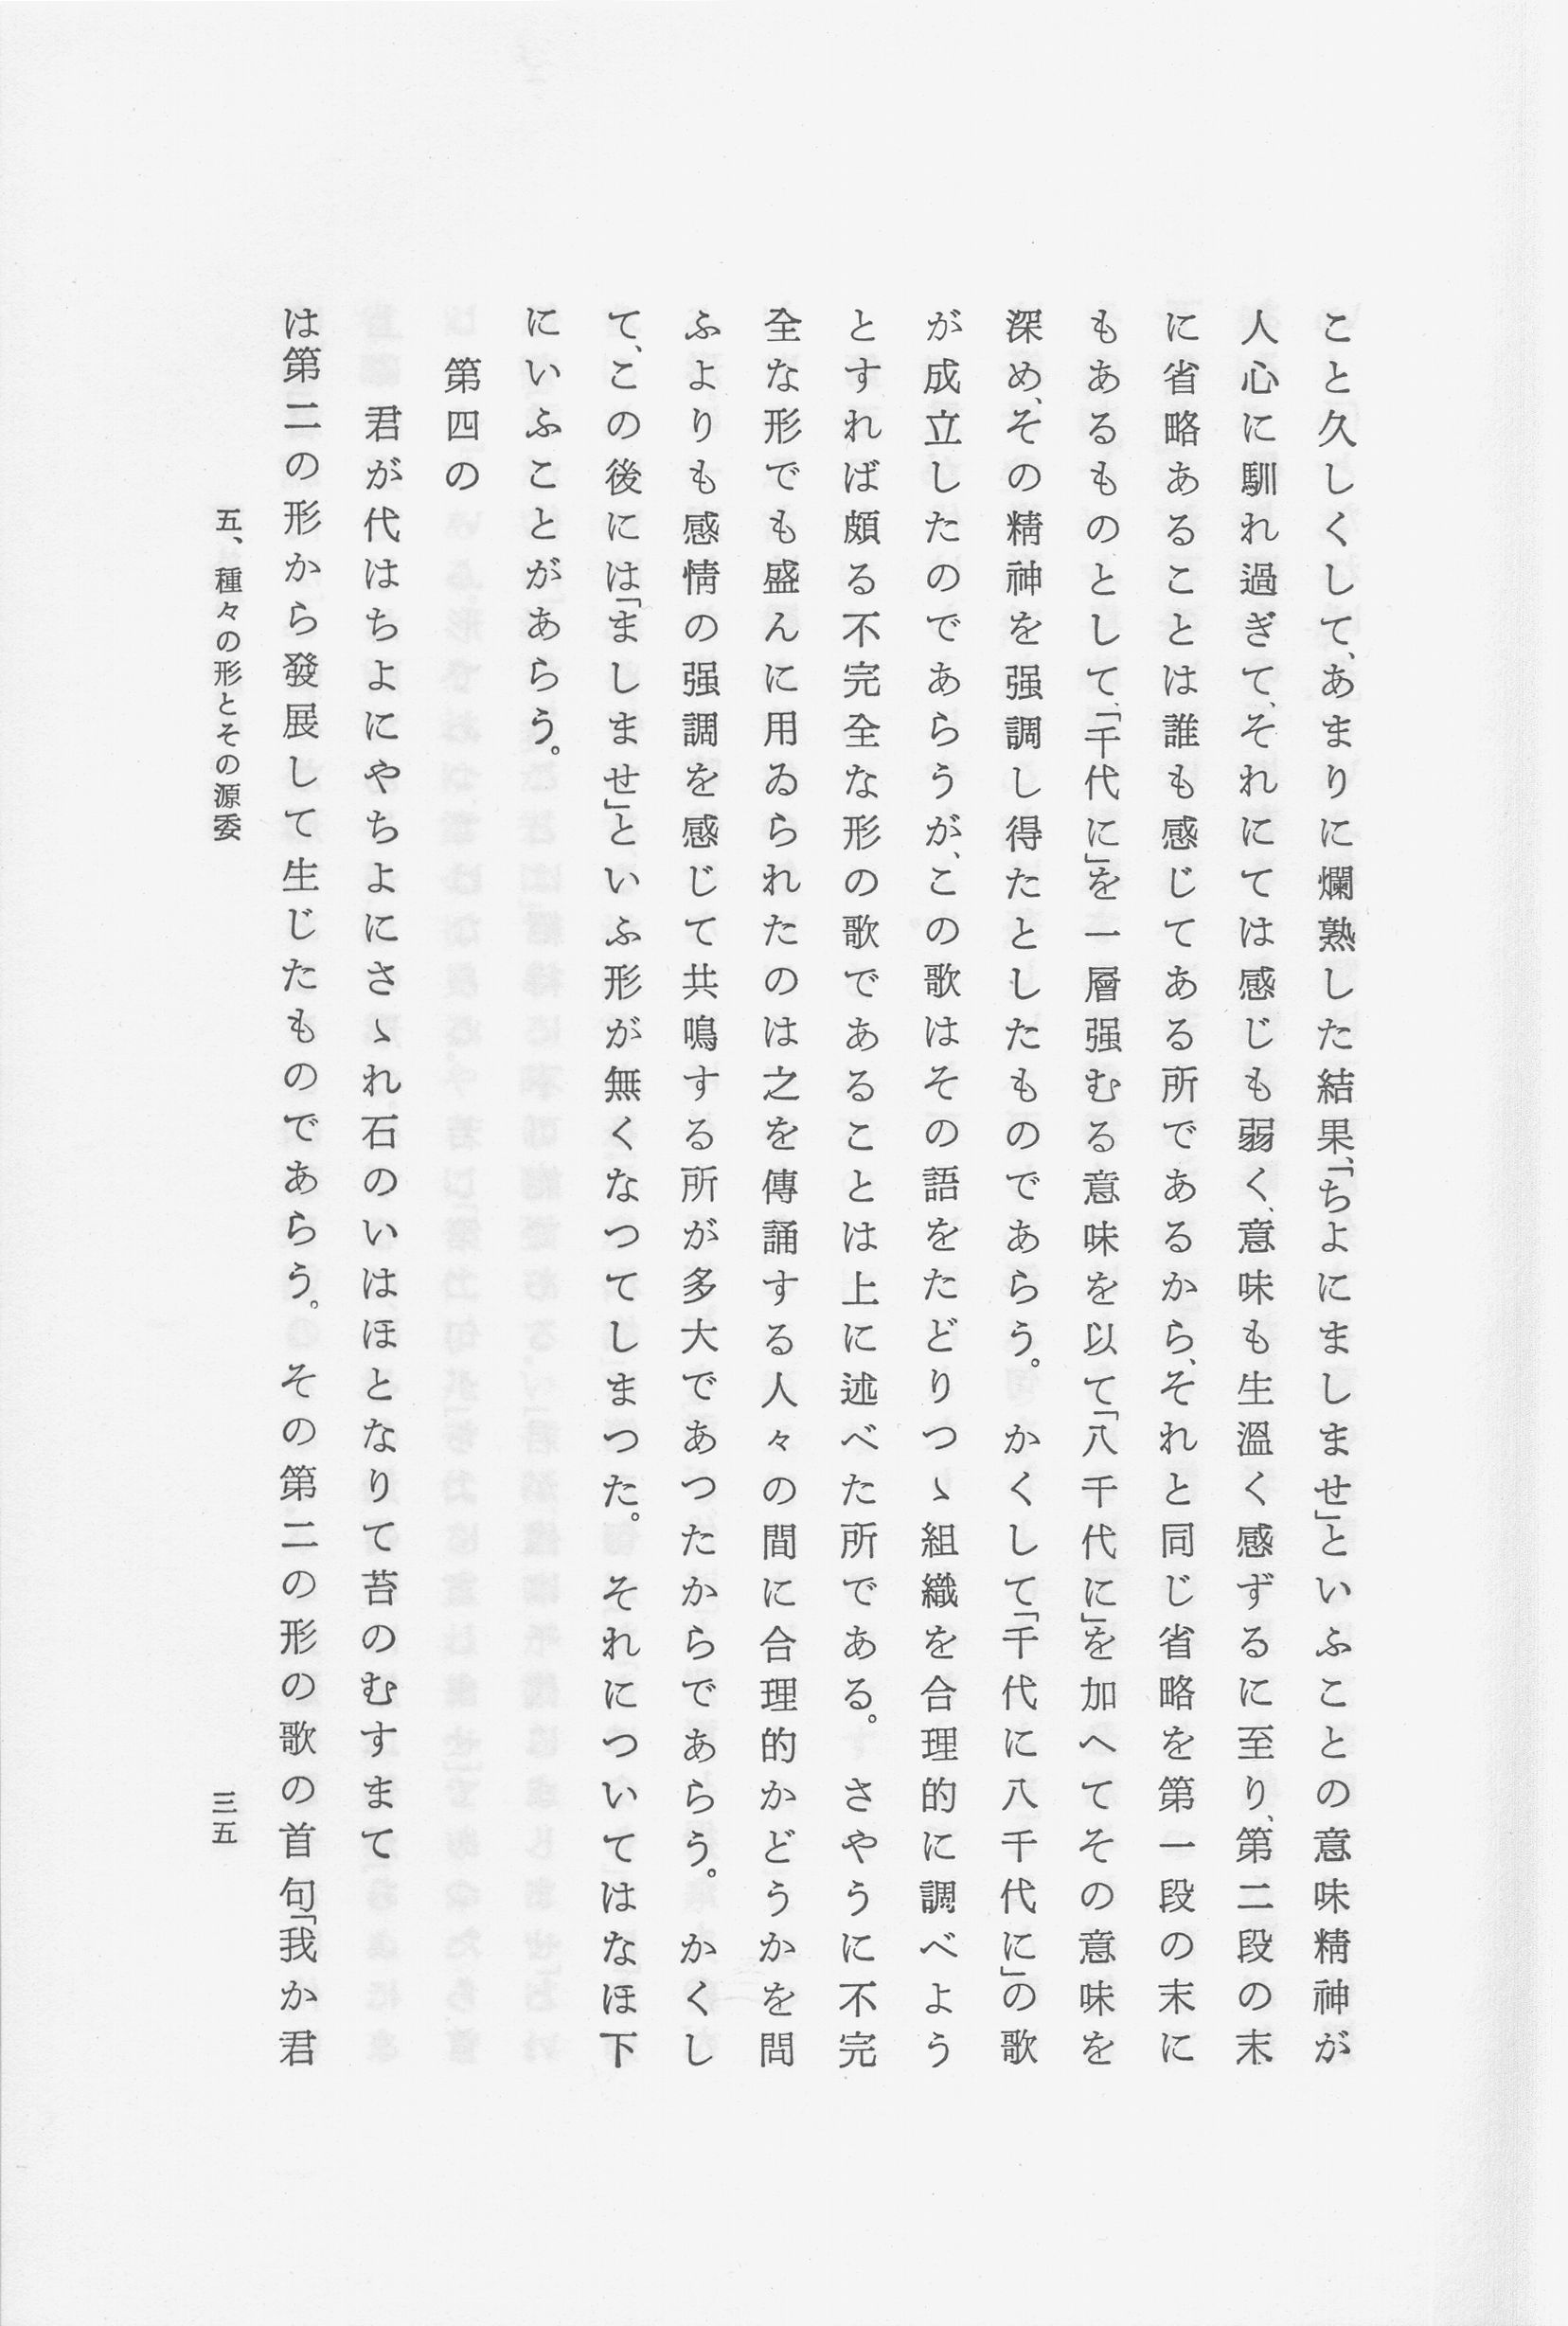 こと久しくして、あまりに爛熟した結果、「ちよにましませ」といふことの意味精神が
人心に馴れ過ぎて、それにては感じも弱く、意味も生溫く感ずるに至り、第二段の末
に省略あることは誰も感じてある所であるから、それと同じ省略を第一段の末に
もあるものとして、「千代に」を一層强むる意味を以て「八千代に」を加へてその意味を
深め、その精神を强調し得たとしたものであらう。かくして「千代に八千代に」の歌
が成立したのであらうが、この歌はその語をたどりつゝ組織を合理的に調べよう
とすれば頗る不完全な形の歌であることは上に述べた所である。さやうに不完
全な形でも盛んに用ゐられたのは之を傳誦する人々の間に合理的かどうかを問
ふよりも感情の强調を感じて共鳴する所が多大であつたからであらう。かくし
て、この後には「ましませ」といふ形が無くなつてしまつた。それについてはなほ下
にいふことがあらう。
第四の
君が代はちよにやちよにさゝれ石のいはほとなりて苔のむすまて
は第二の形から發展して生じたものであらう。その第二の形の歌の首句「我か君
五、種々の形とその源委
三五